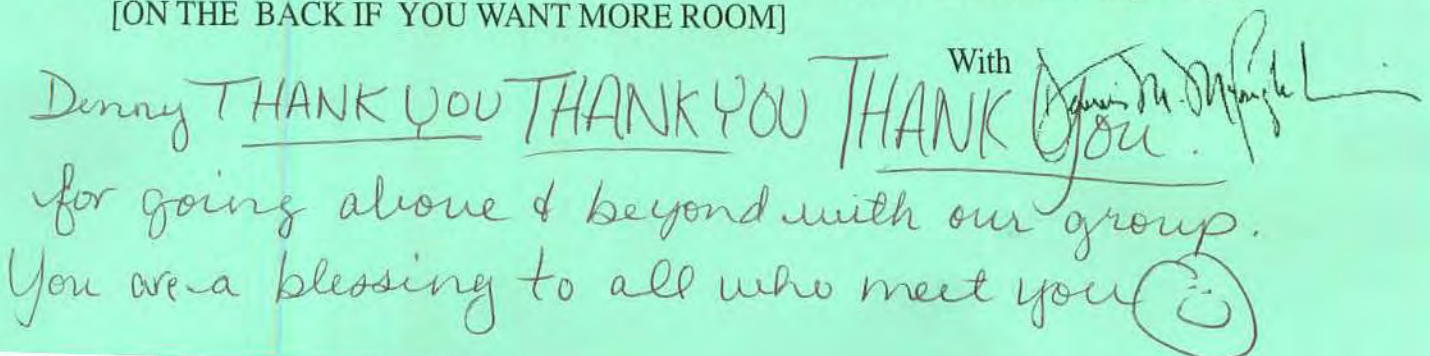 [ON THE BACK IF YOU WANT MORE ROOM]
With
Denny THANK YOU THANK YOU THANK You.
for going above & beyond with our group.
You are a blessing to all who meet you